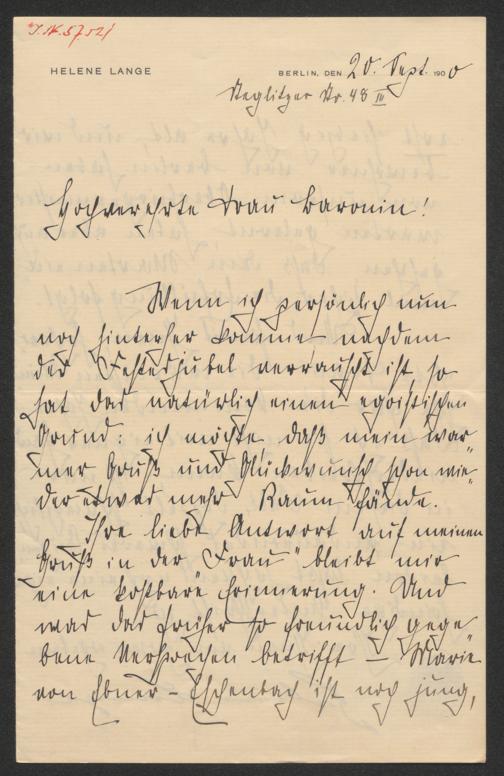 J. N. 57.521
HELENE LANGE
BERLIN, DEN 20. Sept. 1900
Steglitzer Str. 48 IV
Hochverehrte Frau Baronin!
Wenn ich persönlich nun
noch hinterher komme, nachdem
der Festesjubel verrauscht ist, so
hat das natürlich einen egoistischen
Grund: ich möchte, daß mein war-
mer Gruß und Glückwunsch schon wie-
der etwas mehr Raum fände.
Ihre liebe Antwort auf meinen
Gruß in der „Frau" bleibt mir
eine kostbare Erinnerung. Und
was das früher so freundlich gege-
bene Versprechen betrifft – Marie
von Ebner-Eschenbach ist noch jung,